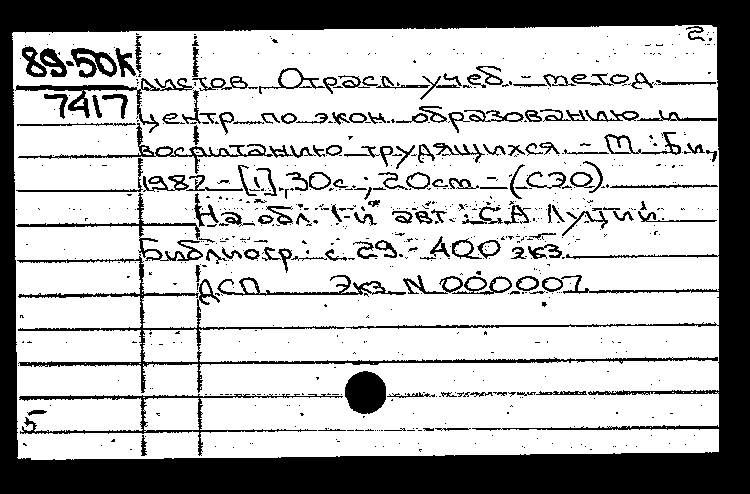 2.
89-50К
7417
листов, Отрасл. учеб.-метод.
центр по экон. образованию и
воспитанию трудящихся. - М. : Б.и.,
1987. - [1], 30с. ; 20см - (СЭО).
На обл. 1-й авт. : С.А. Луций
Библиогр. : с. 29. - 400 экз.
ДСП. Экз. N 000007.
5